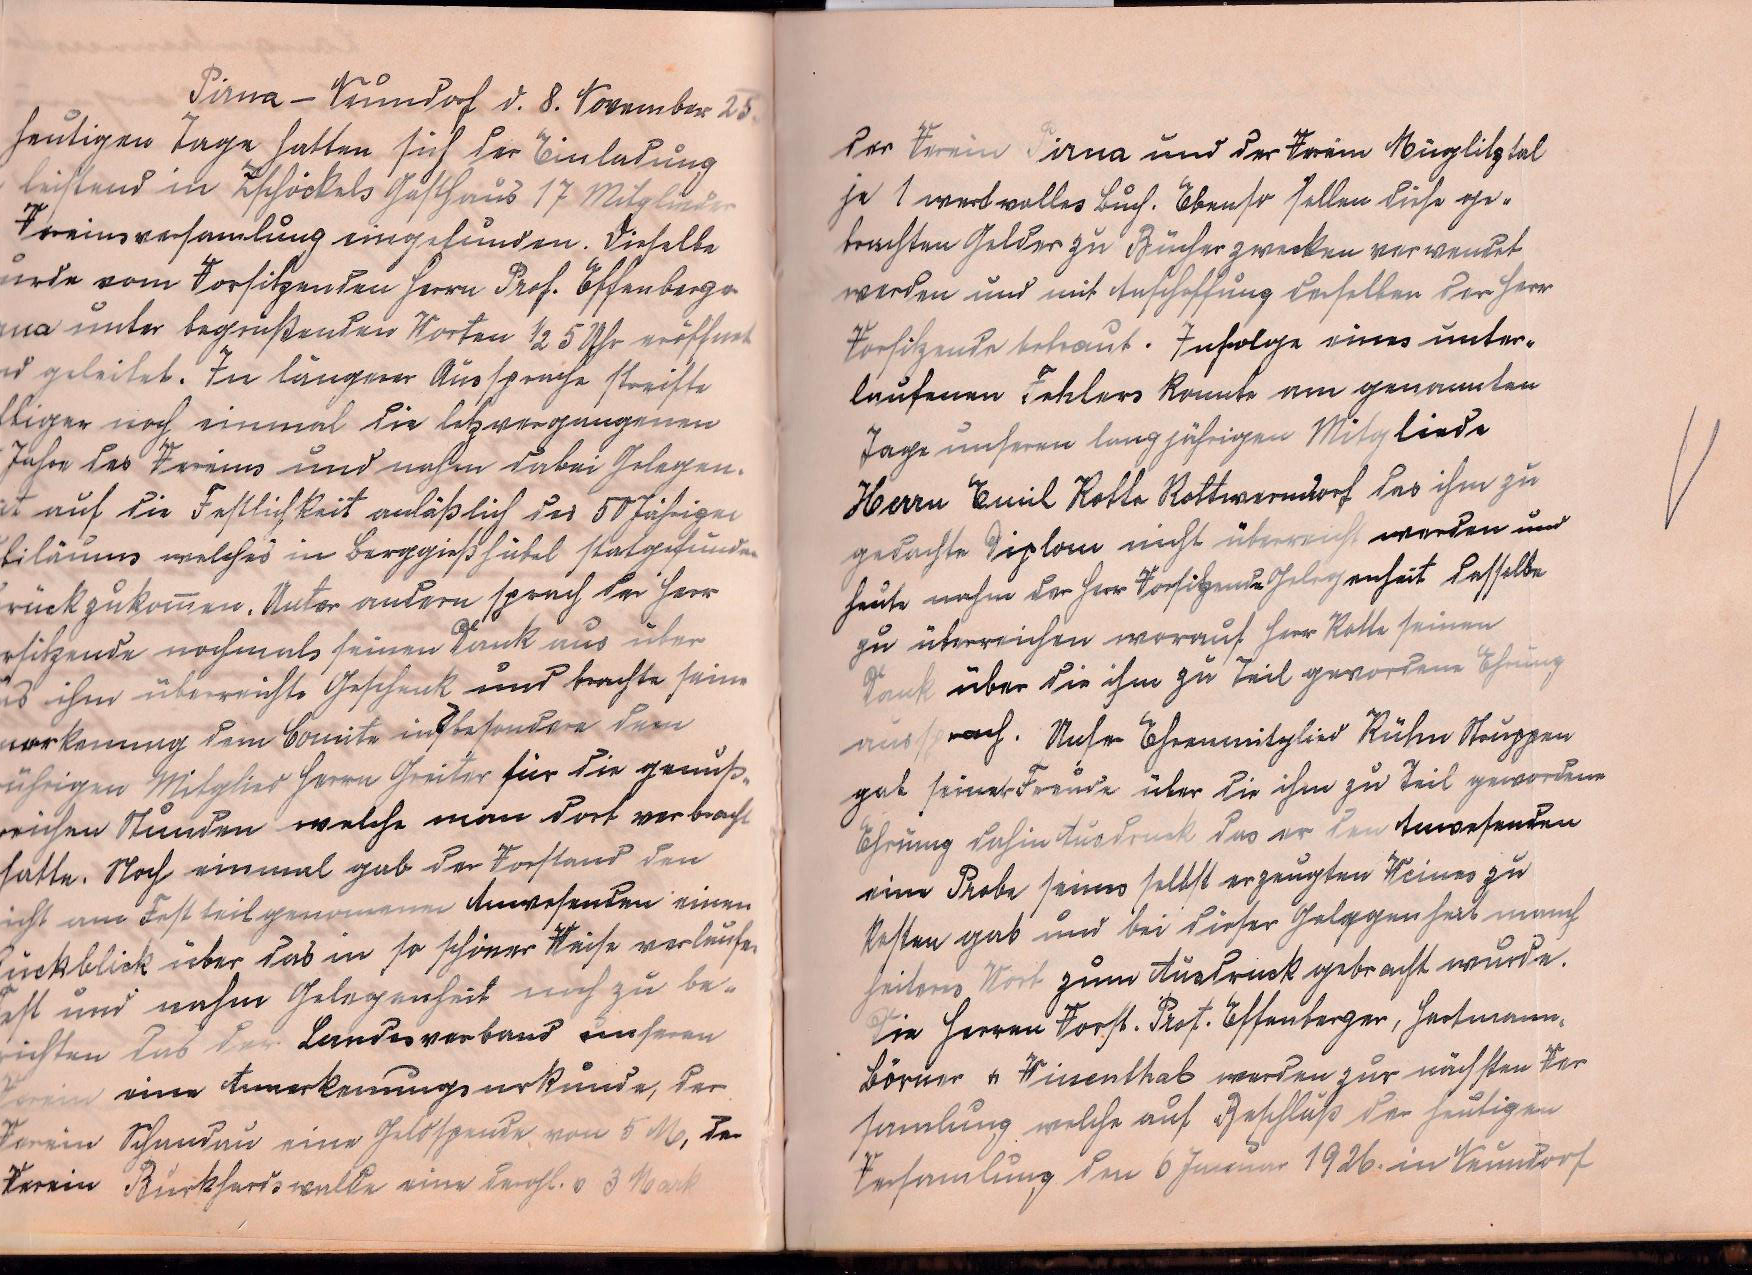 Pirna – Neundorf d. 8. November 25.
heutigen Tage hatten sich der Einladung
leistend in Zschöckels Gasthaus 17 Mitglieder
Vereinsversamlung eingefunden. Dieselbe
urde vom Vorsitzenden Herrn Prof. Effenberger
rna unter begrüßenden Worten ½ 5 Uhr eröffnet
nd geleitet. In längerer Aussprache streifte
noch einmal die letzvergangenen
Jahre des Vereins und nahm dabei Gelegen-
it auf die Festlichkeit anläßlich des 50 Jährigen
biläums welches in Berggießhübel statgefunden
rückzukomen. Unter andern sprach der Herr
rsitzende nochmals seinen Dank aus über
as ihm überreichte Geschenk und brachte seine
nerkenung dem Comite insbesondere dem
rührigen Mitglied Herrn Greiter für die genuß-
reichen Stunden welche man dort verbracht
hatte. Noch einmal gab der Vorstand den
icht am Fest teilgenomenen Anwesenden einen
Rückblick über das in so schöner Weise verlaufe-
Fest und nahm Gelegenheit noch zu be-
richten das der Landesverband unseren
Verein eine Anerkennungsurkunde, der
Verein Schandau eine Geldspende von 5 M, der
Verein Burkhardswalde eine dergl. v 3 Mark
der Verein Pirna und der Verein Müglitztal
je 1 wertvolles Buch. Ebenso sollen diese ge-
brachten Gelder zu Bücherzwecken verwendet
werden und mit Anschaffung derselben der Herr
Vorsitzende betraut. Infolge eines unter-
laufenen Fehlers konnte am genannten
Tage unseren langjährigen Mitgliede
Herrn Emil Kotte Rottwerndorf das ihm zu
gedachte Diplom nicht überreicht werden und
heute nahm der Herr Vorsitzende Gelegenheit dasselbe
zu überreichen worauf Herr Kotte seinen
Dank über die ihm zu Teil gewordene Ehrung
aussprach. Unser Ehrenmitglied Kühn Struppen
gab seiner Freude über die ihm zu Teil gewordene
Ehrung dahin Ausdruck das er den Anwesenden
eine Probe seines selbst erzeugten Weines zu
Kosten gab und bei dieser Gelegenheit manch
heiteres Wort zum Ausdruck gebracht wurde.
Die Herren Vorst. Prof. Effenberger, Hartmann,
Börner u werden zur nächsten Ver
samlung welche auf Beschluß der heutigen
Versamlung den 6 Januar 1926. in Neundorf